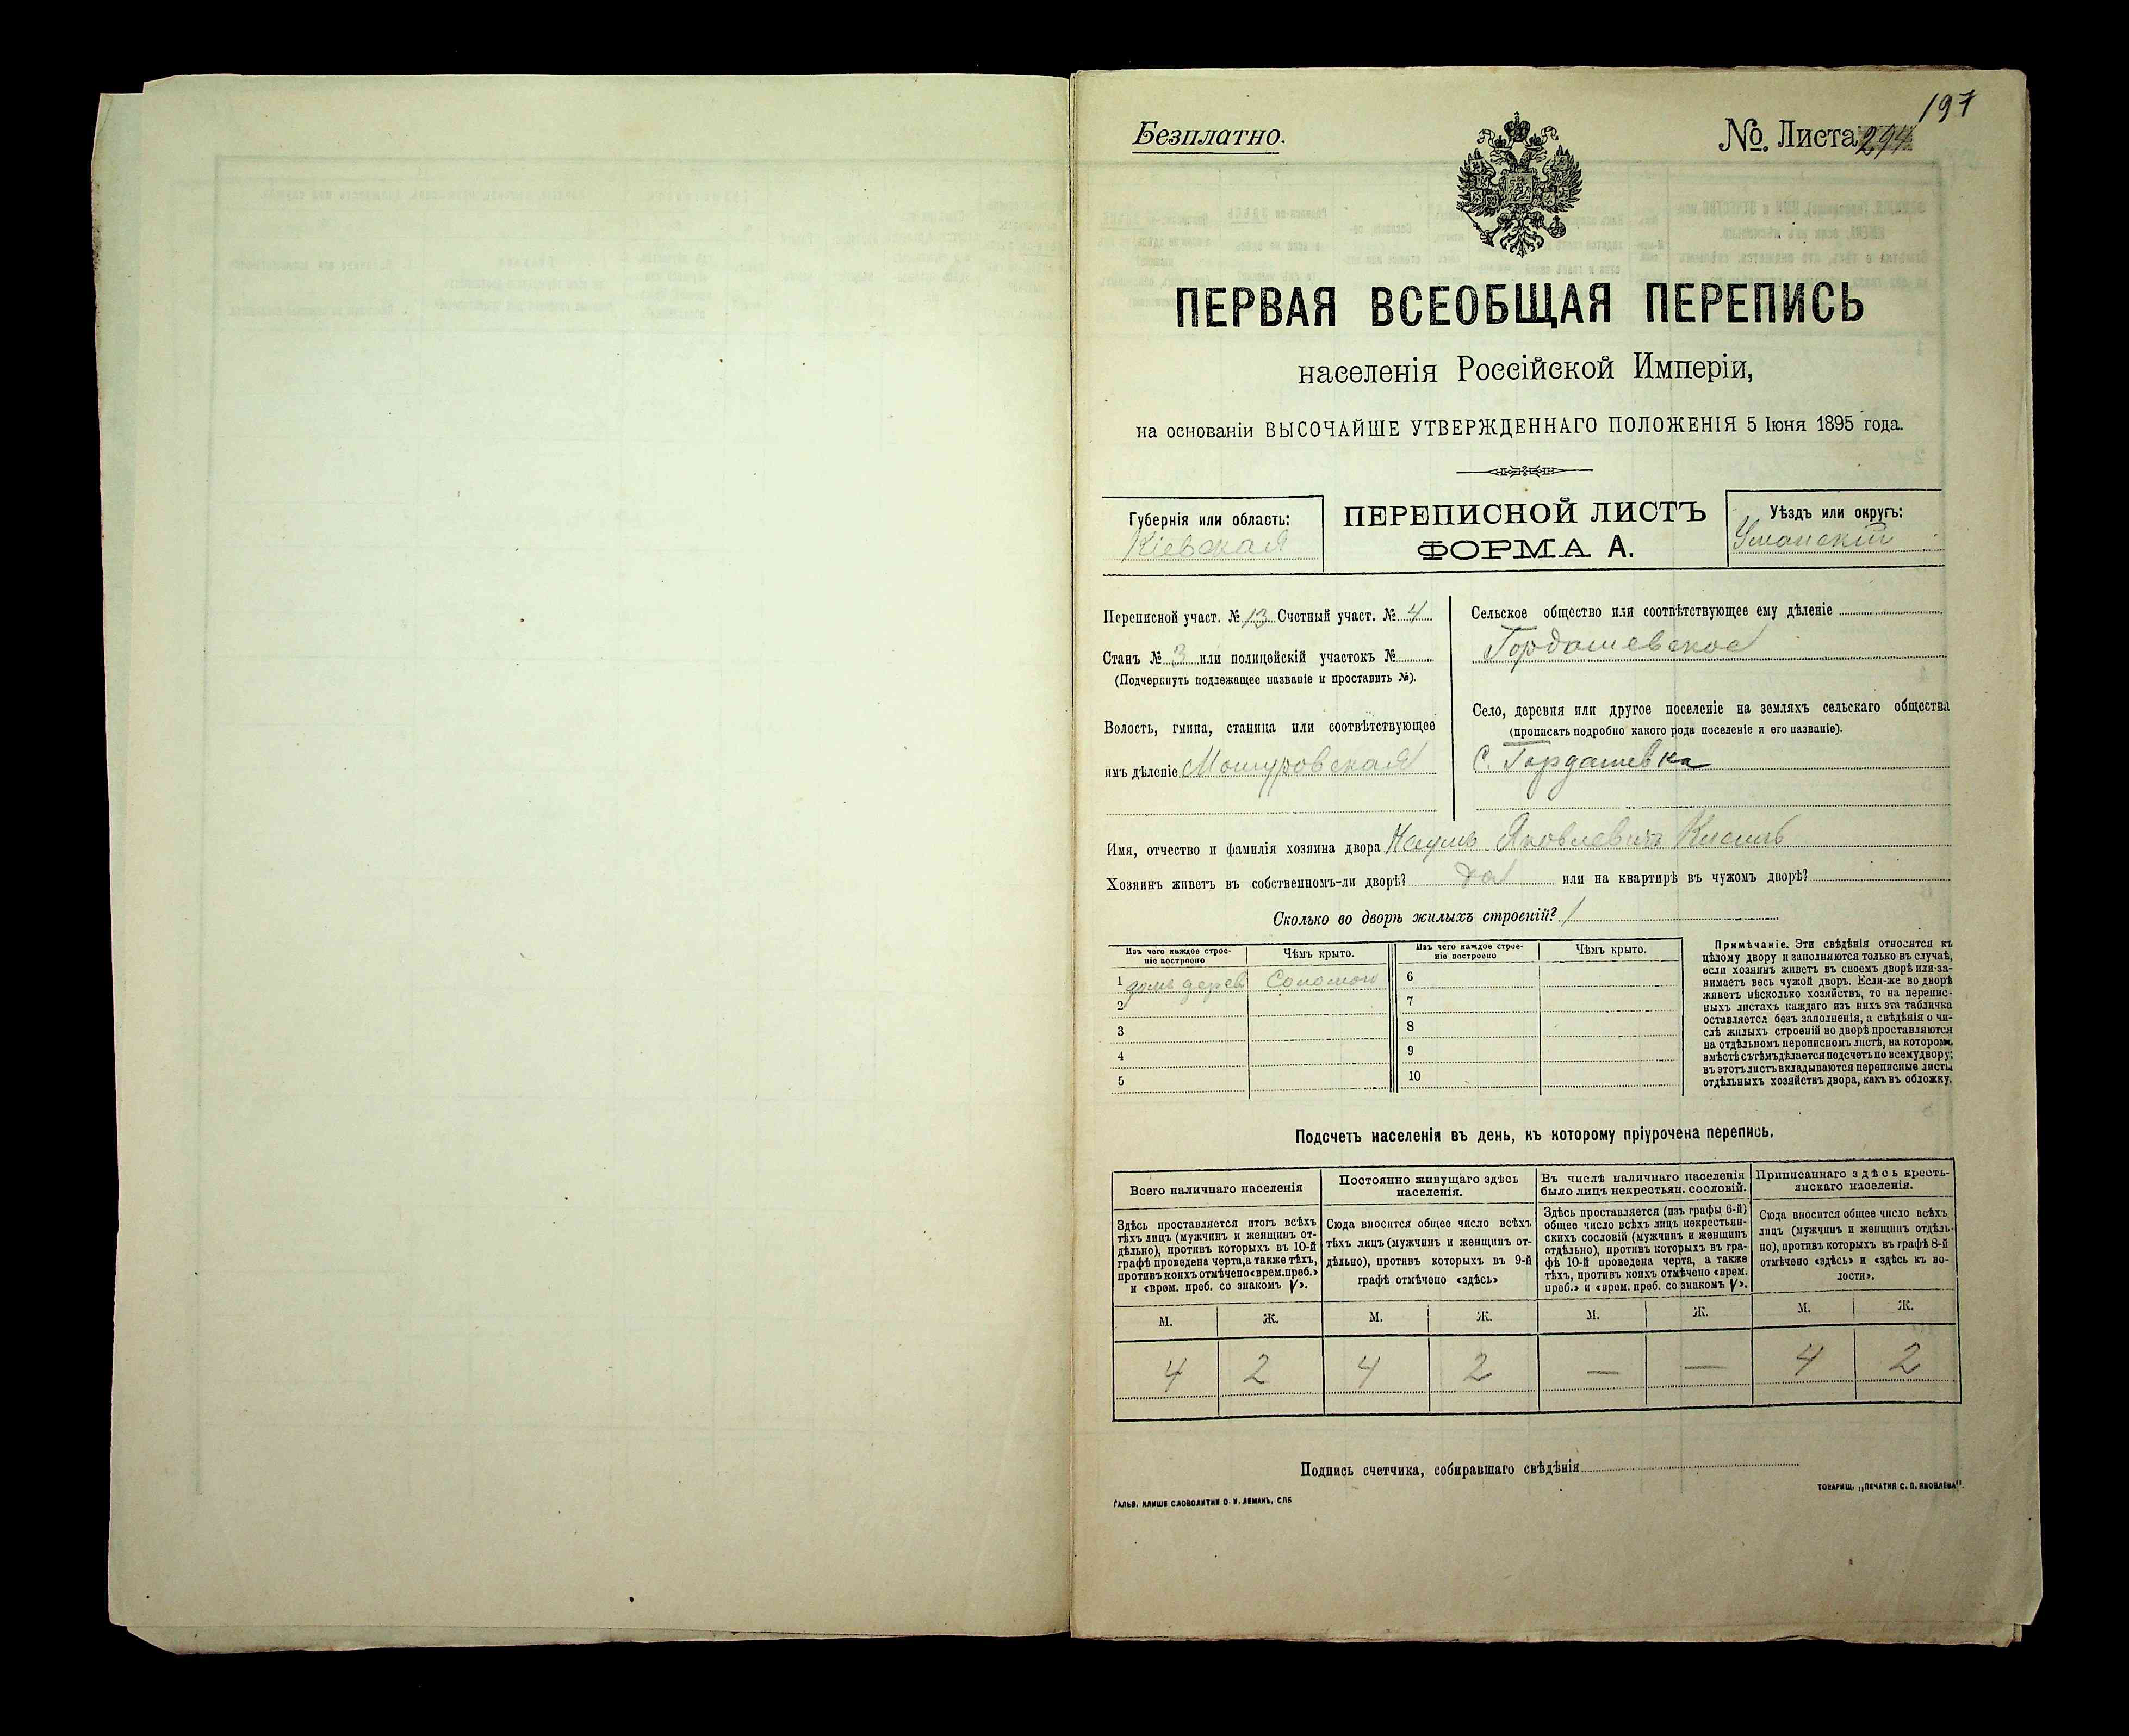 197
Безплатно.
№. Листа 294
ПЕРВАЯ ВСЕОБЩАЯ ПЕРЕПИСЬ
населенія Россійской Имперіи,
на основаніи ВЫСОЧАЙШЕ УТВЕРЖДЕННАГО ПОЛОЖЕНІЯ 5 Іюня 1895 года.
Губернія или область:
Кіевская
ПЕРЕПИСНОЙ ЛИСТЪ
ФОРМА А.
Уѣздъ или округъ:
Уманскій
Переписной участ. № 13 Счетный участ. № 4
Станъ № 3 или полицейскій участокъ №
(Подчеркнуть подлежащее названіе и проставить №).
Волость, гмина, станица или соотвѣтствующее
имъ дѣленіе Мошуровская
Сельское общество или соотвѣтствующее ему дѣленіе
Гордашевское
Село, деревня или другое поселеніе на земляхъ сельскаго общества
(прописать подробно какого рода поселеніе и его названіе).
С. Гордашевка
Имя, отчество и фамилія хозяина двора Наумъ Яковлевичъ
Хозяинъ живетъ въ собственномъ-ли дворѣ? да или на квартирѣ въ чужомъ дворѣ?
Сколько во дворѣ жилыхъ строеній? 1
Изъ чего каждое строе-
ніе построено
Чѣмъ крыто.
Изъ чего каждое строе-
ніе построено
Чѣмъ крыто.
1 домъ дерев Соломою 6
2 7
3 8
4 9
5 10
Примѣчаніе. Эти свѣдѣнія относятся къ
цѣлому двору и заполняются только въ случаѣ,
если хозяинъ живетъ въ своемъ дворѣ или за-
нимаетъ весь чужой дворъ. Если-же во дворѣ
живетъ нѣсколько хозяйствъ, то на перепис-
ныхъ листахъ каждаго изъ нихъ эта табличка
оставляется безъ заполненія, а свѣдѣнія о чи-
слѣ жилыхъ строеній во дворѣ проставляются
на отдѣльномъ переписномъ листѣ, на которомъ
вмѣстѣ съ тѣмъ дѣлается подсчетъ по всему двору;
въ этотъ листъ вкладываются переписные листы
отдѣльныхъ хозяйствъ двора, какъ въ обложку.
Подсчетъ населенія въ день, къ которому пріурочена перепись.
Всего наличнаго населенія
Здѣсь проставляется итогъ всѣхъ
тѣхъ лицъ (мужчинъ и женщинъ от-
дѣльно), противъ которыхъ въ 10-й
графѣ проведена черта, а также тѣхъ,
противъ коихъ отмѣчено «врем. преб.»
и «врем. преб. со знакомъ V».
Постоянно живущаго здѣсь
населенія.
Сюда вносится общее число всѣхъ
тѣхъ лицъ (мужчинъ и женщинъ от-
дѣльно), противъ которыхъ въ 9-й
графѣ отмѣчено «здѣсь»
Въ числѣ наличнаго населенія
было лицъ некрестьян. сословій.
Здѣсь проставляется (изъ графы 6-й)
общее число всѣхъ лицъ некрестьян-
скихъ сословій (мужчинъ и женщинъ
отдѣльно), противъ которыхъ въ гра-
фѣ 10-й проведена черта, а также
тѣхъ, противъ коихъ отмѣчено «врем.
преб.» и «врем. преб. со знакомъ V».
Приписаннаго здѣсь кресть-
янскаго населенія.
Сюда вносится общее число всѣхъ
лицъ (мужчинъ и женщинъ отдѣль-
но), противъ которыхъ въ графѣ 8-й
отмѣчено «здѣсь» и «здѣсь къ во-
лости».
М. Ж. М. Ж. М. Ж. М. Ж.
4 2 4 2 — — 4 2
Подпись счетчика, собиравшаго свѣдѣнія
ГАЛЬВ. КЛИШЕ СЛОВОЛИТНИ О. И. ЛЕМАНЪ, СПБ
ТОВАРИЩ. „ПЕЧАТНЯ С. П. ЯКОВЛЕВА".